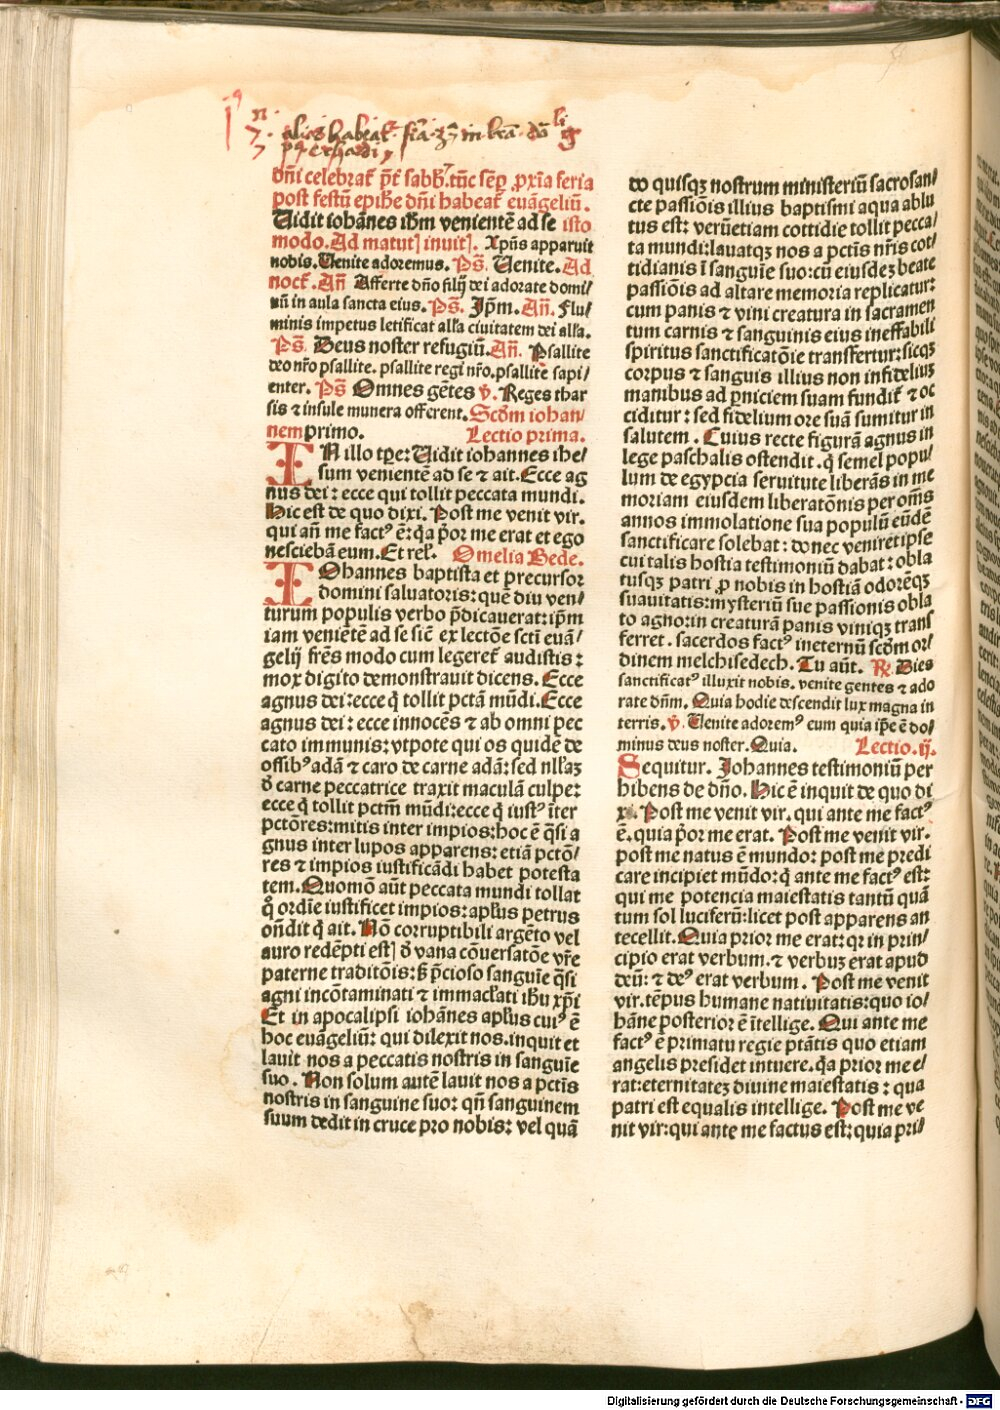 alias habeat᷑ feria
dn̄i celebrat᷑ p̄t sabb. tūc semp ꝓxīa feria
post festū epiph̄e dn̄i habeat᷑ euāgeliū.
Uidit iohānes ih̄m venientē ad se isto
modo. Ad matut᷑ inuit᷑. Xp̄us apparuit
nobis. Uenite adoremus. Ps̄. Uenite. Ad
noct᷑. An̄ Afferte dn̄o filij dei adorate domi/
nū in aula sancta eius. Ps̄. Ip̄m. An̄. Flu/
minis impetus letificat alľa ciuitatem dei alľa.
Ps̄. Deus noster refugiū. An̄. Psallite
deo nr̄o psallite. psallite regi nr̄o. psallite sapi/
enter. Ps̄ Omnes gētes ℣. Reges thar
sis ⁊ insule munera offerent. Scd̄m iohan/
nem primo. Lectio prima.
IN illo tp̄e: Uidit iohannes ihe/
sum venientē ad se ⁊ ait. Ecce ag
nus dei: ecce qui tollit peccata mundi.
Hic est de quo dixi. Post me venit vir.
qui an̄ me factꝰ ē: q̄a p̄or me erat et ego
nesciebā eum. Et rel̄. Omelia Bede.
IOhannes baptista et precursor
domini saluatoris: quē diu ven/
turum populis verbo p̄dicauerat: ip̄m
iam veniētē ad se sic̄ ex lectōe sctī euā/
gelij fr̄es modo cum legeret᷑ audistis:
mox digito demonstrauit dicens. Ecce
agnus dei: ecce q̄ tollit pctā mūdi. Ecce
agnus dei: ecce innocēs ⁊ ab omni pec
cato immunis: vtpote qui os quidē de
ossibꝰ adā ⁊ caro de carne adā: sed nll̄aꝫ
d̄ carne peccatrice traxit maculā culpe:
ecce q̄ tollit pctm̄ mūdi: ecce q̄ iustꝰ īter
pctōres: mitis inter impios: hoc ē q̄si a
gnus inter lupos apparens: etiā pctō/
res ⁊ impios iustificādi habet potesta
tem. Quomō aūt peccata mundi tollat
q̄ ordīe iustificet impios: apl̄us petrus
on̄dit q̄ ait. Nō corruptibili argēto vel
auro redēpti est᷑ d̄ vana cōuersatōe vr̄e
paterne traditōis: s̄ p̄cioso sanguīe q̄si
agni incōtaminati ⁊ immacl̄ati ih̄u xp̄i
Et in apocalipsi iohānes apl̄us cuiꝰ ē
hoc euāgeliū: qui dilexit nos. inquit et
lauit nos a peccatis nostris in sanguīe
suo. Non solum autē lauit nos a pctīs
nostris in sanguine suo: qn̄ sanguinem
suum dedit in cruce pro nobis: vel quā
do quisqꝫ nostrum ministeriū sacrosan/
cte passiōis illius baptismi aqua ablu
tus est: verūetiam cottidie tollit pecca/
ta mundi: lauatqꝫ nos a pctīs nr̄is cot/
tidianis ī sanguīe suo: cū eiusdeꝫ beate
passiōis ad altare memoria replicatur:
cum panis ⁊ vini creatura in sacramen
tum carnis ⁊ sanguinis eius ineffabili
spiritus sanctificatōie transfertur: sicqꝫ
corpus ⁊ sanguis illius non infideliuꝫ
manibus ad ꝑniciem suam fundit᷑ ⁊ oc
ciditur: sed fidelium ore suā sumitur in
salutem. Cuius recte figurā agnus in
lege paschalis ostendit. q̄ semel popu/
lum de egypcia seruitute liberās in me
moriam eiusdem liberatōnis per om̄s
annos immolatione sua populū eūdē
sanctificare solebat: donec veniret ipse
cui talis hostia testimoniū dabat: obla
tusqꝫ patri ꝓ nobis in hostiā odorēqꝫ
suauitatis: mysteriū sue passionis obla
to agno: in creaturā panis viniqꝫ trans
ferret. sacerdos factꝰ ineternū scd̄m or/
dinem melchisedech. Tu aūt. ℟. Dies
sanctificatꝰ illuxit nobis. venite gentes ⁊ ado
rate dn̄m. Quia hodie descendit lux magna in
terris. ℣. Uenite adoremꝰ eum quia ip̄e ē do/
minus deus noster. Quia. Lectio. ij.
Sequitur. Johannes testimoniū per
hibens de dn̄o. Hic ē inquit de quo di
xi. Post me venit vir. qui ante me factꝰ
ē. quia p̄or me erat. Post me venit vir.
post me natus ē mundo: post me predi
care incipiet mūdo: q̄ ante me factꝰ est:
qui me potencia maiestatis tantū quā
tum sol luciferū: licet post apparens an
tecellit. Quia prior me erat: qꝛ in prin/
cipio erat verbum. ⁊ verbuꝫ erat apud
deū: ⁊ deꝰ erat verbum. Post me venit
vir. tēpus humane natiuitatis: quo io/
hāne posterior ē ītellige. Qui ante me
factꝰ ē primatu regie ptātis quo etiam
angelis presidet intuere. q̄a prior me e/
rat: eternitateꝫ diuine maiestatis: qua
patri est equalis intellige. Post me ve
nit vir: qui ante me factus est: quia pri/
Digitalisierung gefördert durch die Deutsche Forschungsgemeinschaft - DFG